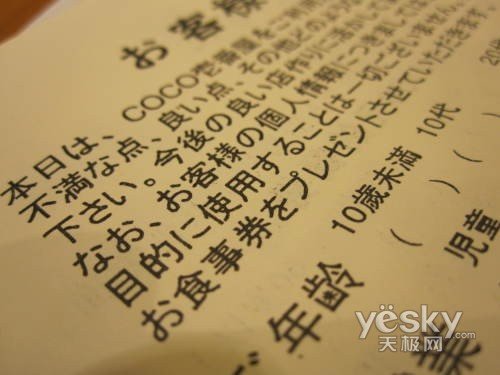 お客様
本日は、COCO壱番屋をご利用
不満な点、良い点、その他どのような
下さい。今後の良い店作りに活かして
なお、お客様の個人情報につきましては
目的に使用することは一切ございません。
お食事券をプレゼントさせていただきます
年齢 10歳未満 10代 20代
( ) (
児童
業
yësky
天极网